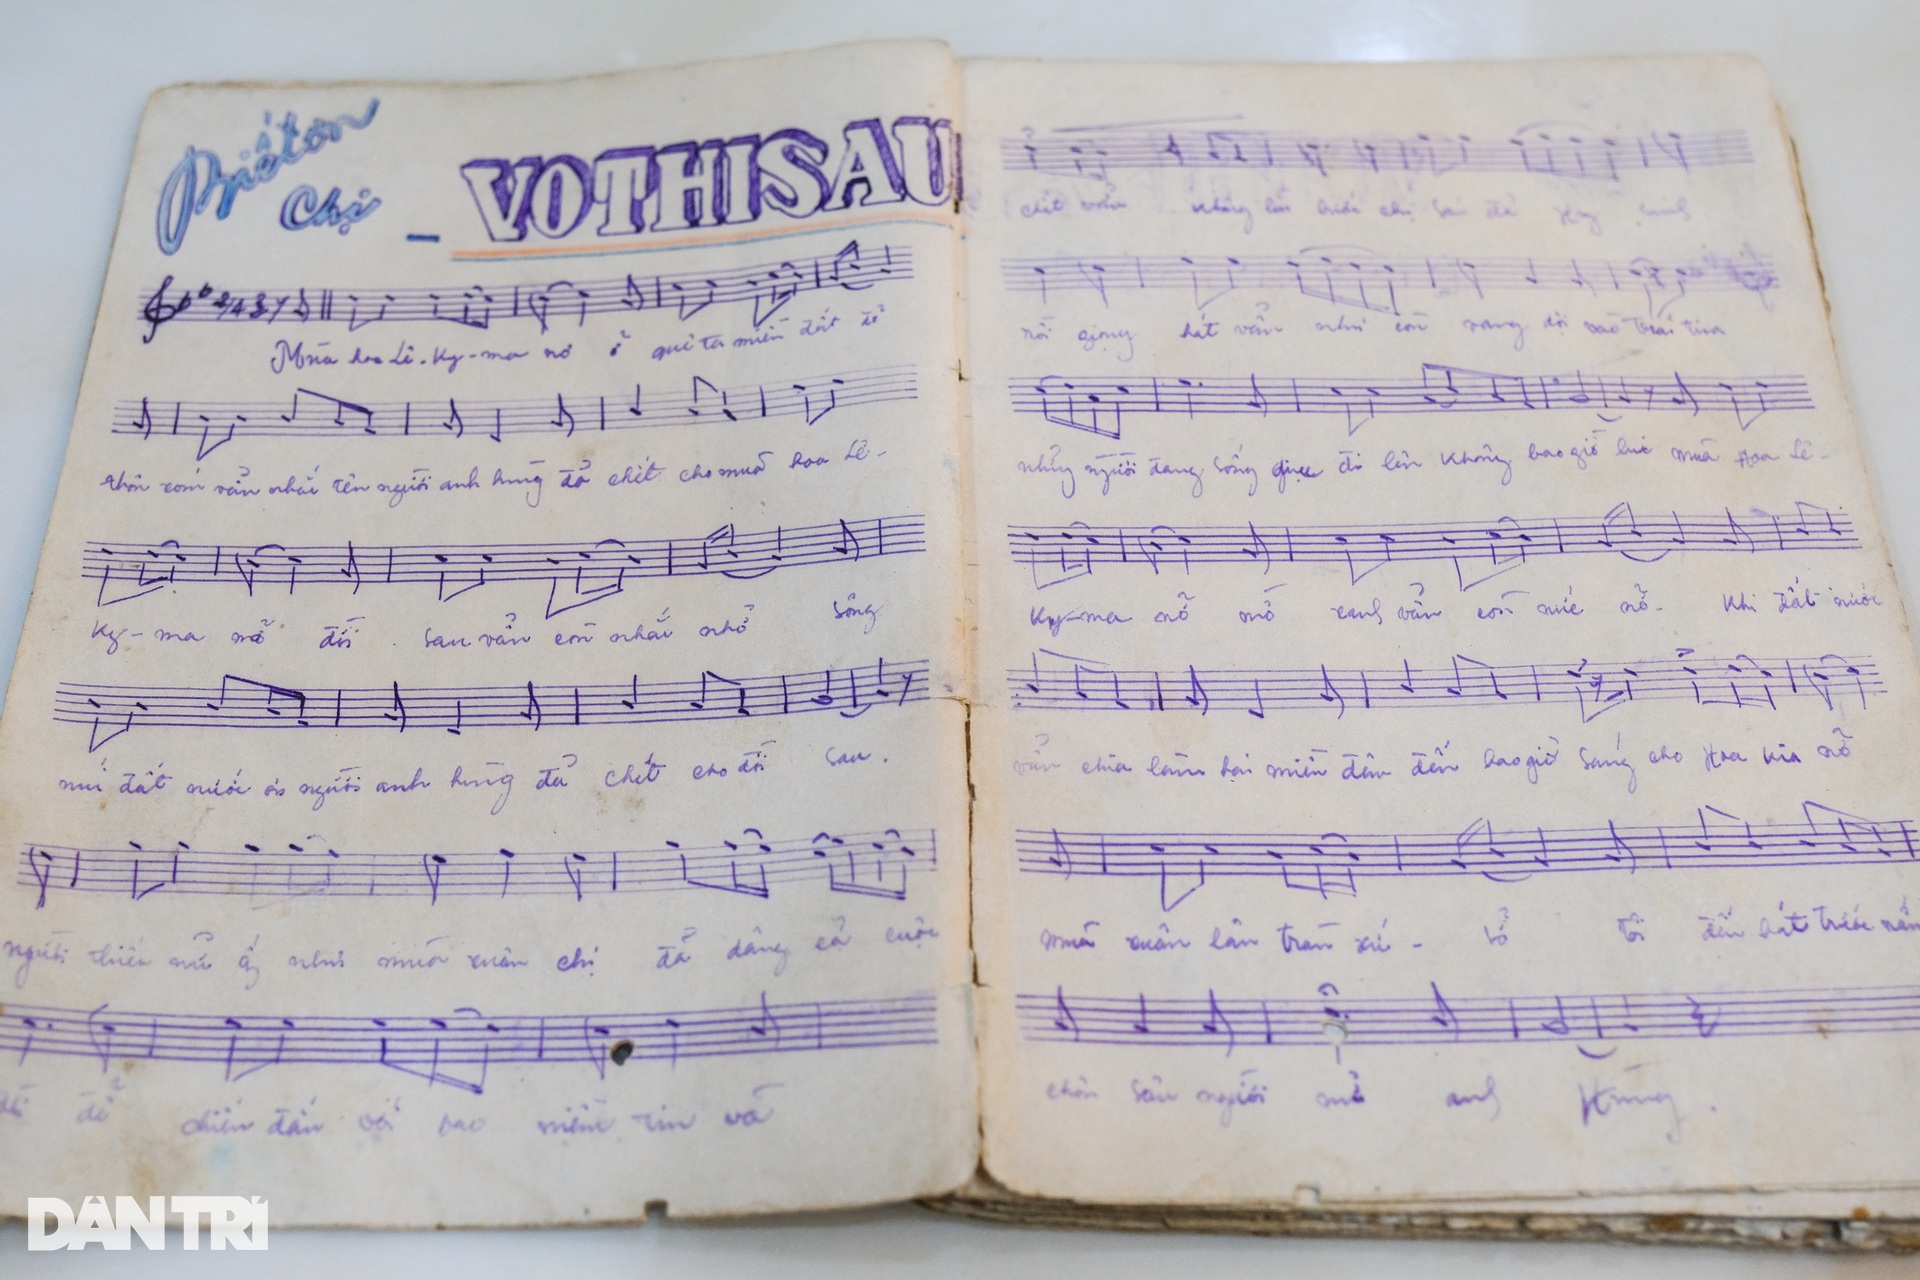 Biết ơn
Chị _ VOTHISAU
Mùa hoa Lê-Ky-ma nở ở quê ta miền đất đỏ
thôn xóm vẫn nhắc tên người anh hùng đã chết cho mùa hoa Lê-
Ky-ma nở đời sau vẫn còn nhắc nhở Sông
núi đất nước ơn người anh hùng đã chết cho đời sau.
người thiếu nữ ấy như mùa xuân chị đã dâng cả cuộc
để chiến đấu với bao niềm tin và
chết vẫn không lùi bước chị Sáu đã hy sinh
rồi giọng hát vẫn như còn vang dội vào trái tim
những người đang sống giục đi lên không bao giờ lùi mùa Hoa Lê-
Ky-ma nở mỏ xanh vẫn còn nức nở. Khi đất nước
vẫn chia làm hai miền đêm đến bao giờ sáng cho Hoa kia nở
mùa xuân lan tràn xứ - sở tôi đến hát trước nấm
chôn sâu người nữ anh Hùng.
DÂN TRÍ